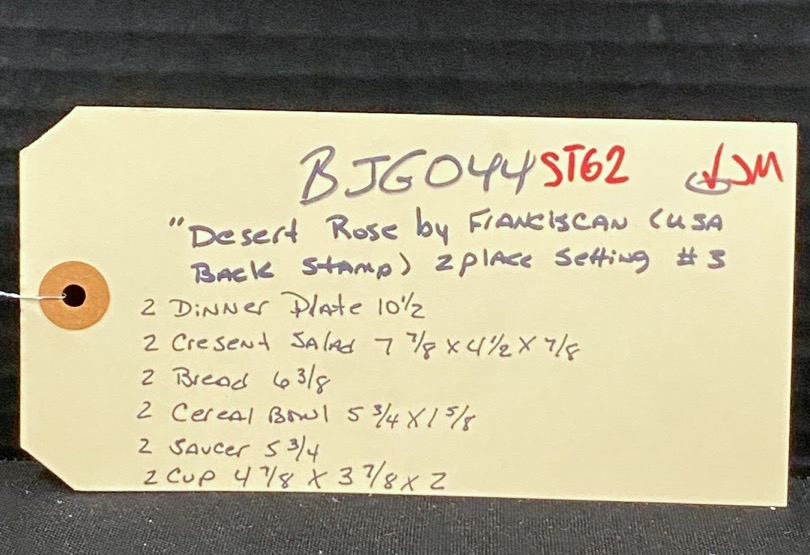 BJG044 ST62 JM
"Desert Rose by Franciscan (USA
Back Stamp) 2 place Setting #3
2 Dinner Plate 10 1/2
2 Cresent Salad 7 7/8 x 4 1/2 x 7/8
2 Bread 6 3/8
2 Cereal Bowl 5 3/4 x 1 5/8
2 Saucer 5 3/4
2 Cup 4 7/8 x 3 7/8 x 2